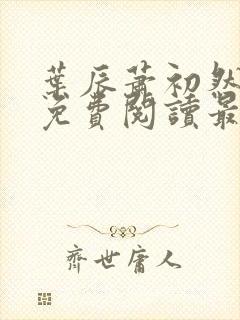 葉辰蕭初然
免費閱讀最
齊世庸人